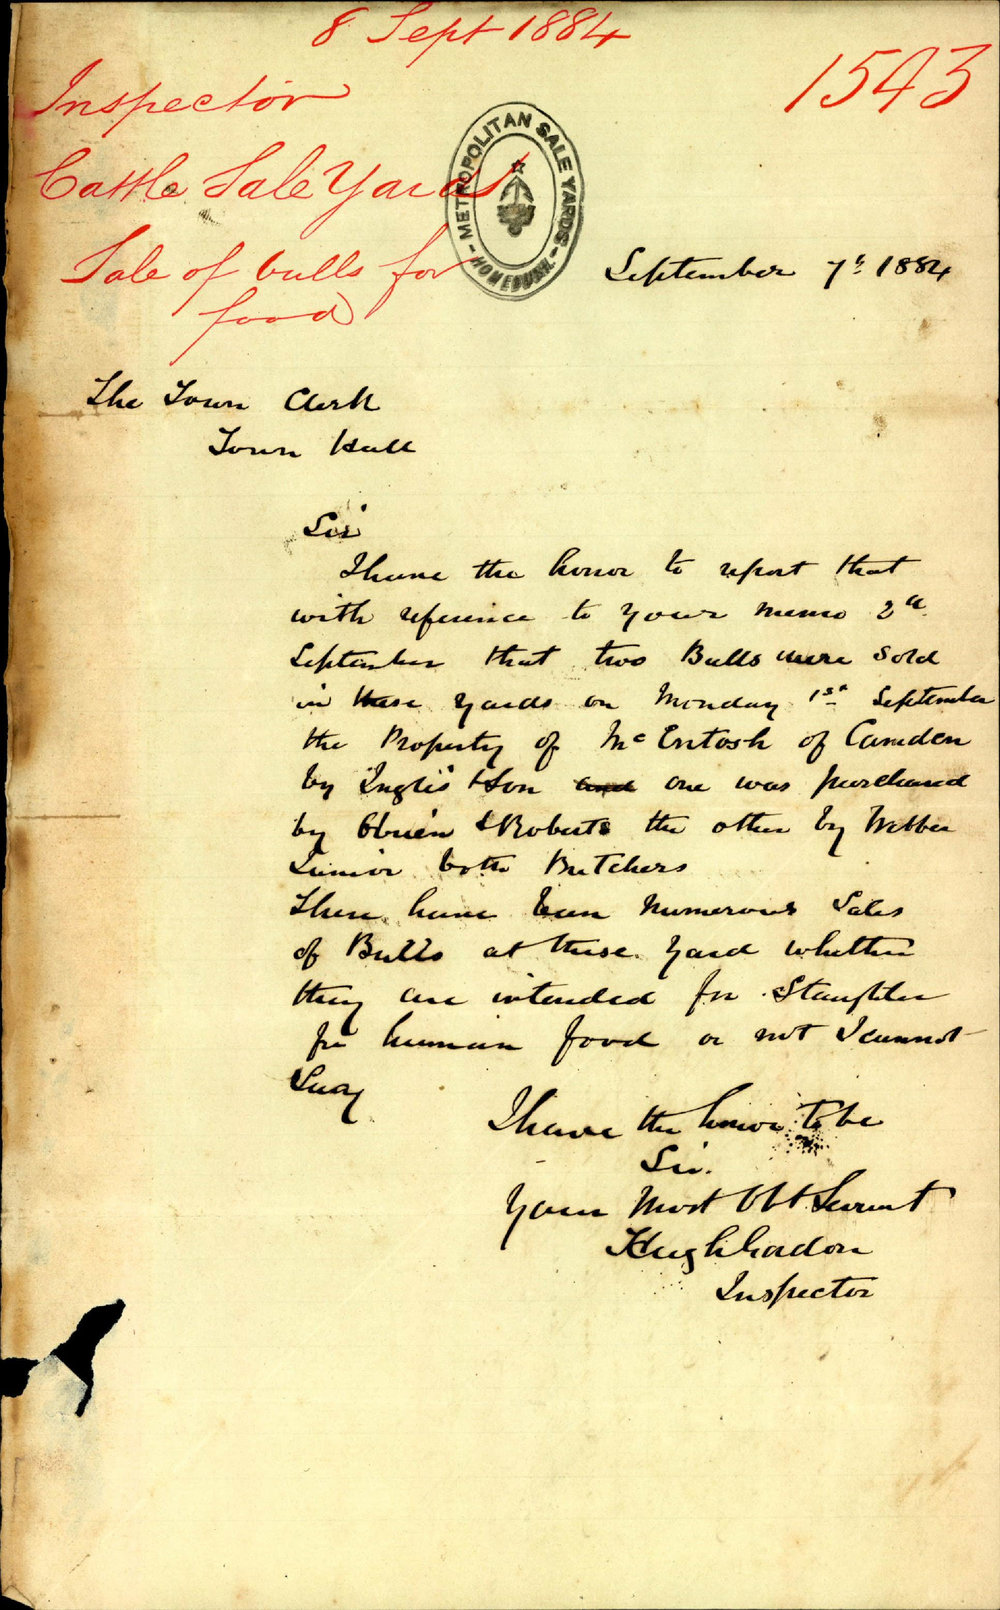 8 Sept 1884
1543
Inspector
Cattle Sale Yards
Sale of bulls for
food
METROPOLITAN SALE YARDS
HOMEBUSH
September 7th 1884
The Town Clerk
Town Hall
Sir
I have the honor to report that
with reference to your memo 2d
September that two Bulls were Sold
in these yards on Monday 1st September
the Property of McEntosh of Camden
by Inglis & Son and one was purchased
by Obrien & Roberts the other by Webber
Junior both Butchers
There have been Numerous Sales
of Bulls at these Yard whether
they are intended for Slaughter
for human food or not I cannot
Say
I have the honor to be
Sir.
Your Most Obt Servant
Hugh
Inspector